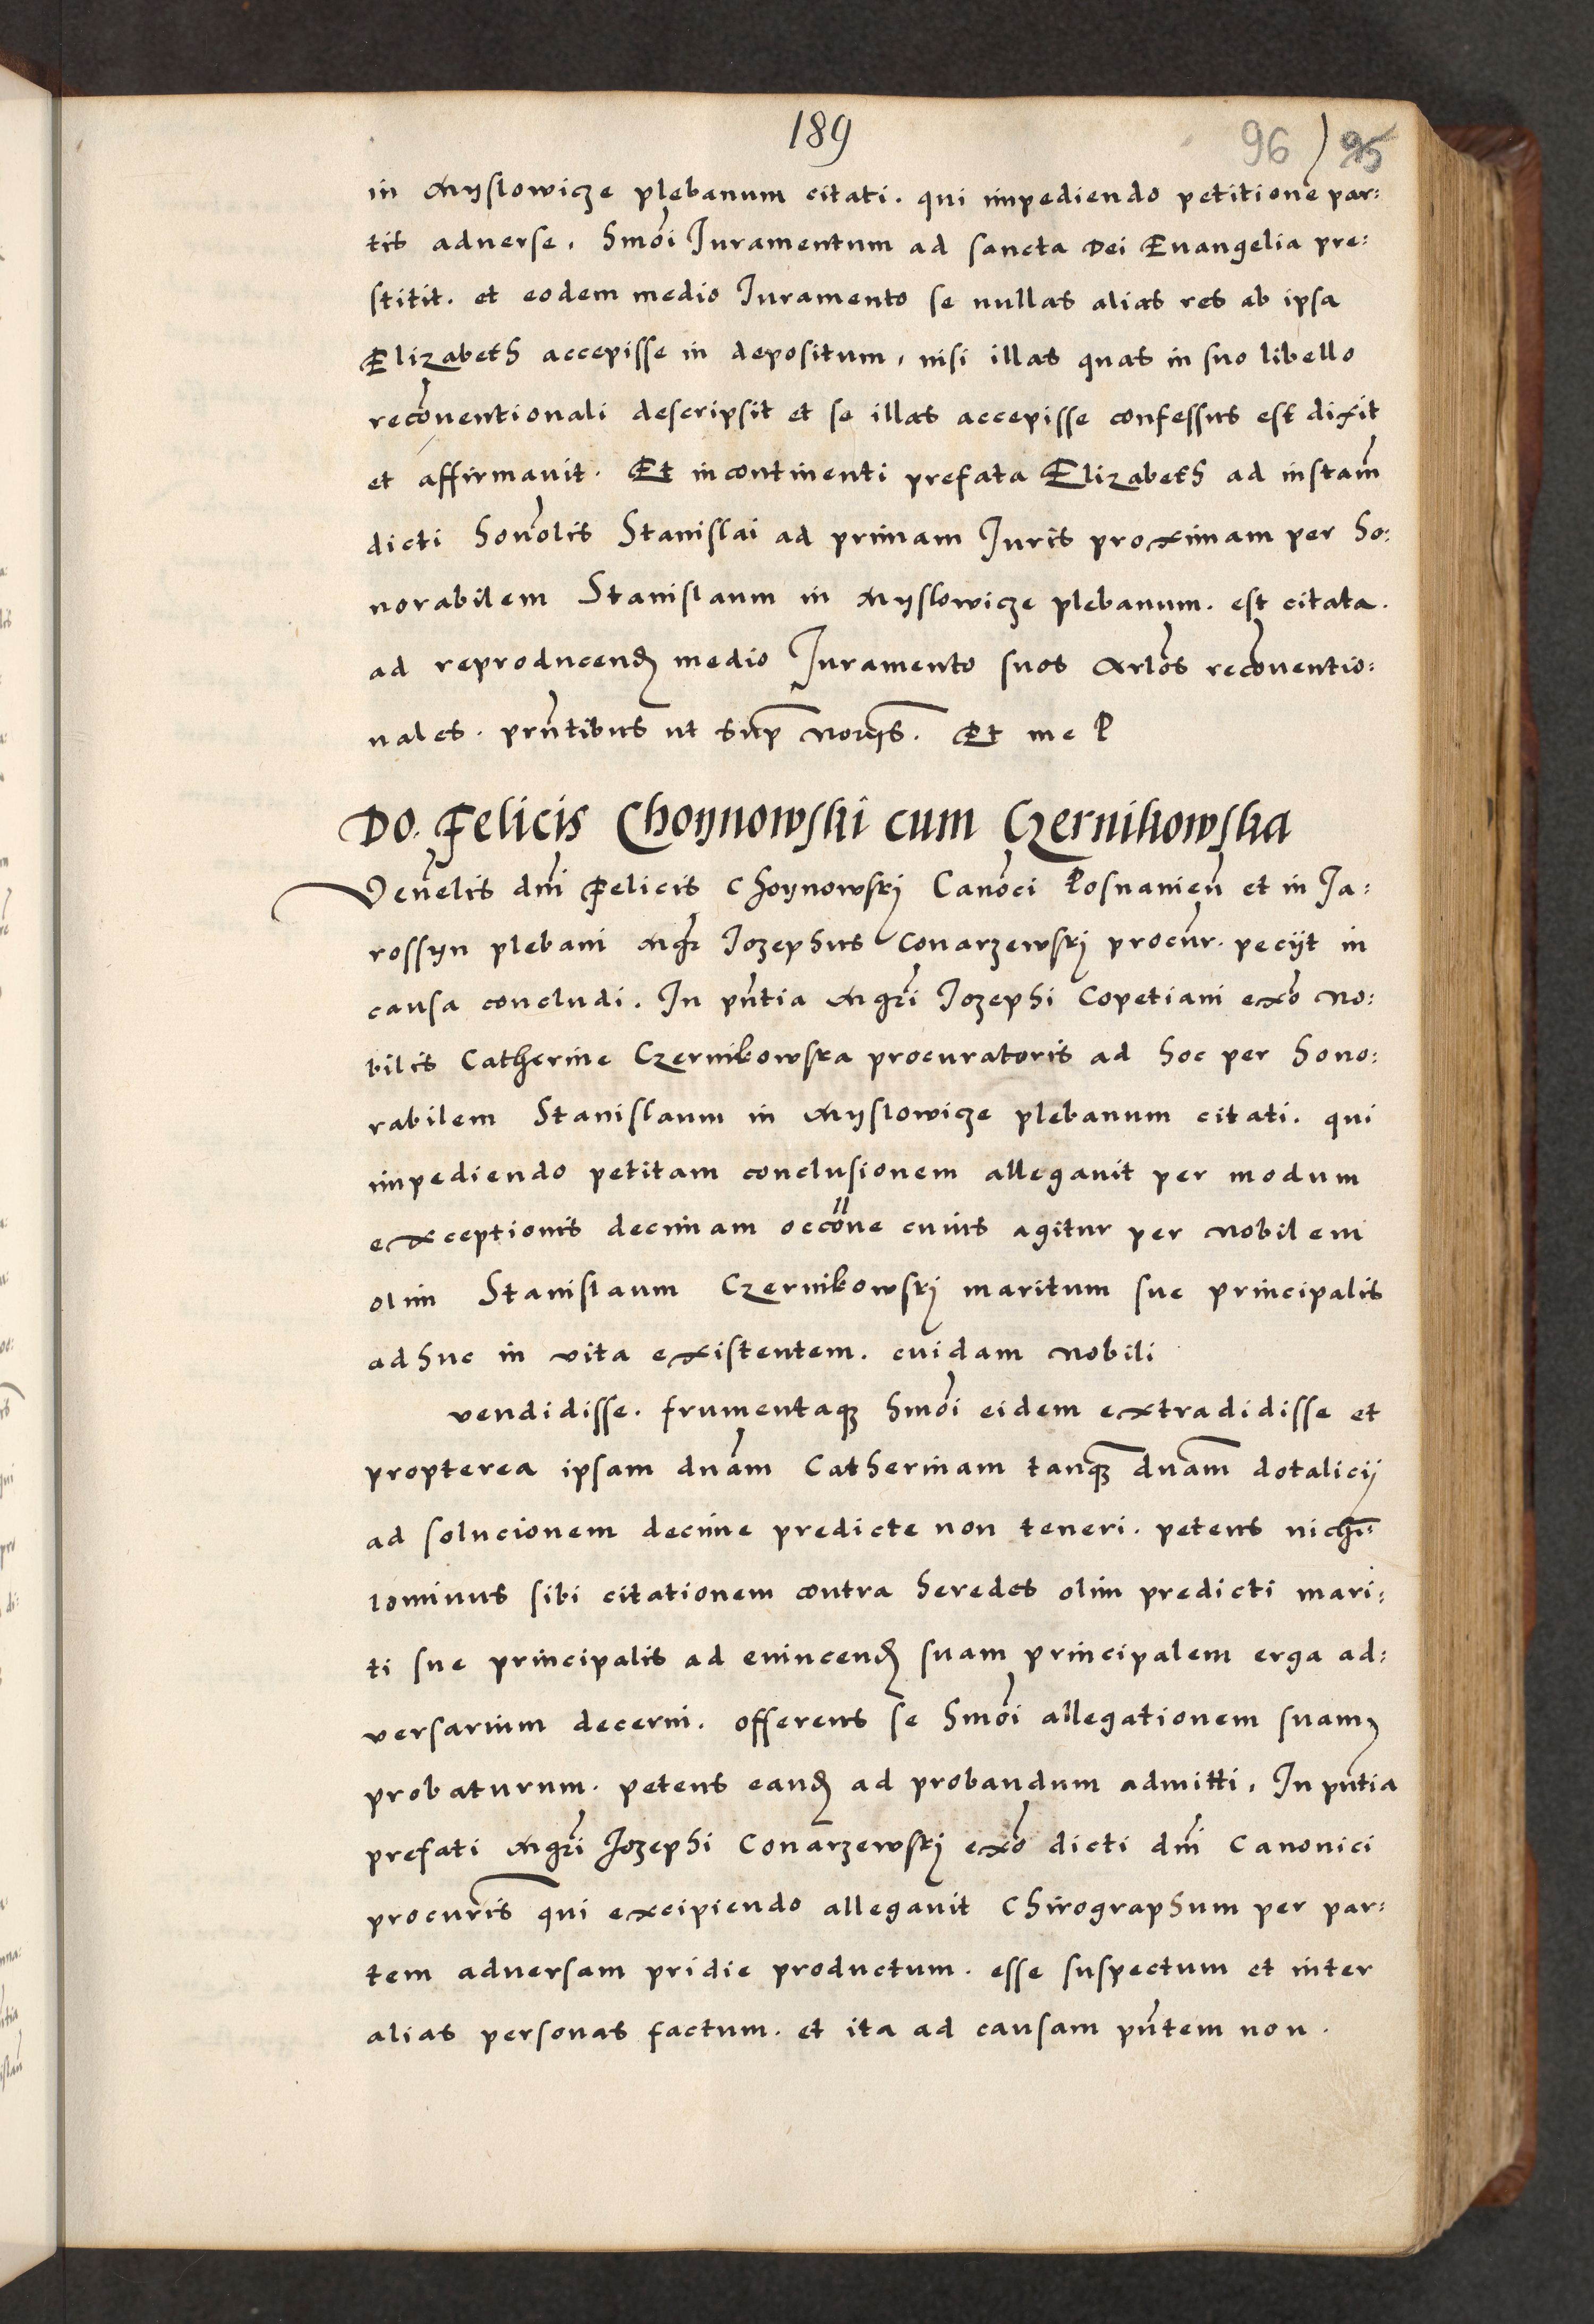 189
96 ) 95
in Myslowicze plebanum citati. qui impediendo petitionē par:
tis adverse. Hmōi Iuramentum ad sancta Dei Euangelia pre:
stitit. et eodem medio Iuramento se nullas alias res ab ipsa
Elizabeth accepisse in depositum, nisi illas quas in suo libello
recōventionali descripsit et se illas accepisse confessus est dixit
et affirmavit. Et incontinenti prefata Elizabeth ad instam̄
dicti honōlis Stanislai ad primam Iuris proximam per ho:
norabilem Stanislaum in Myslowicze plebanum. est citata.
ad reproducend̄ medio Iuramento suos Artlōs recōventio:
nales. prn̄tibus ut sup̄ noriis. Et me P
Do. Felicis Choynowski cum Czernikowska
Ven̄elis dn̄i Felicis Choynowskj Canōci Posnanien̄ et in Ja:
rossyn plebani Mgr̄ Iozephus Conarzewskj procur̄. peciit in
causa concludi. In pn̄tia Mgr̄i Iozephi Copetiani exō No:
bilis Catherine Czernikowska procuratoris ad hoc per hono:
rabilem Stanislaum in Myslowicze plebanum citati. qui
impediendo petitam conclusionem allegavit per modum
exceptionis decimam occōne cuius agitur per Nobilem
olim Stanislaum Czernikowskj maritum sue principalis
adhuc in vita existentem. cuidam Nobili
vendidisse. frumentaqȝ hmōi eidem extradidisse et
propterea ipsam dnām Catherinam tanqȝ dnam̄ dotalicij
ad solucionem decime predicte non teneri. petens nichi=
lominus sibi citationem contra heredes olim predicti mari:
ti sue principalis ad evincend̄ suam principalem erga ad:
versarium decerni. offerens se hmōi allegationem suam
probaturum. petens eand̄ ad probandum admitti. In pn̄tia
prefati Mgr̄i Iozephi Conarzewskj exō dicti dn̄i Canonici
procurīs qui excipiendo allegavit Chirographum per par:
tem adversam pridie productum. esse suspectum et inter
alias personas factum. et ita ad causam pn̄tem non.